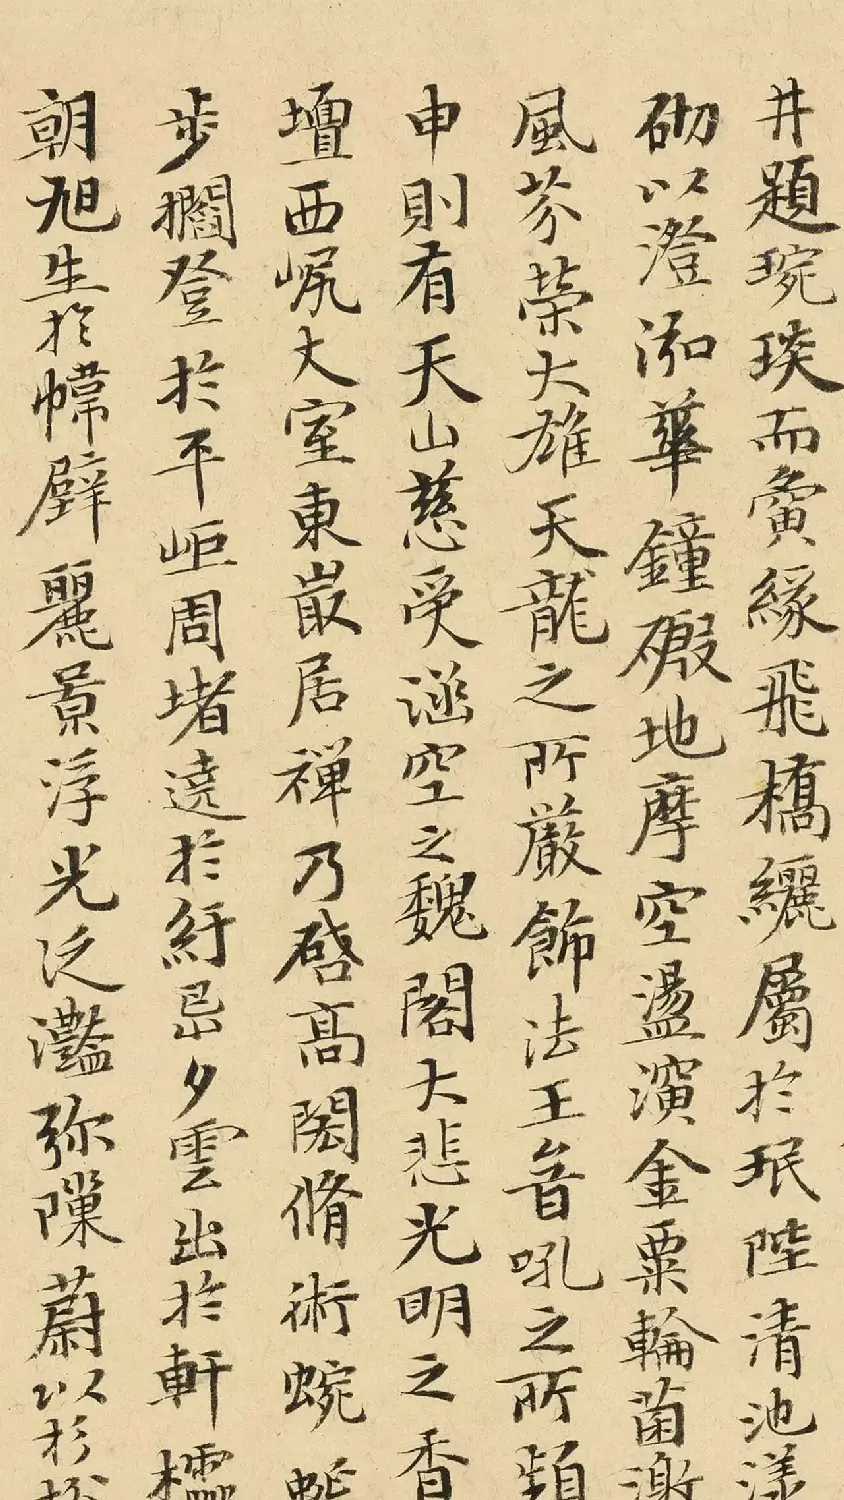 井題琬琰而夤緣飛橋纚屬於珉陸清池漾
砌以澄泓華鐘磤地摩空盪濱金粟輪菌
風芬荣大雄天龍之所嚴飾法王音吼之所
申則有天山慈受遊空之魏閣大悲光明之香
壇西㞍大室東嵓居禅乃啓高閎脩術蜿
步擱登於平岠周堵遶於紆夕雲出於軒櫺
朝旭生於幃壁麗景浮光泛灩弥隟蔚以杉